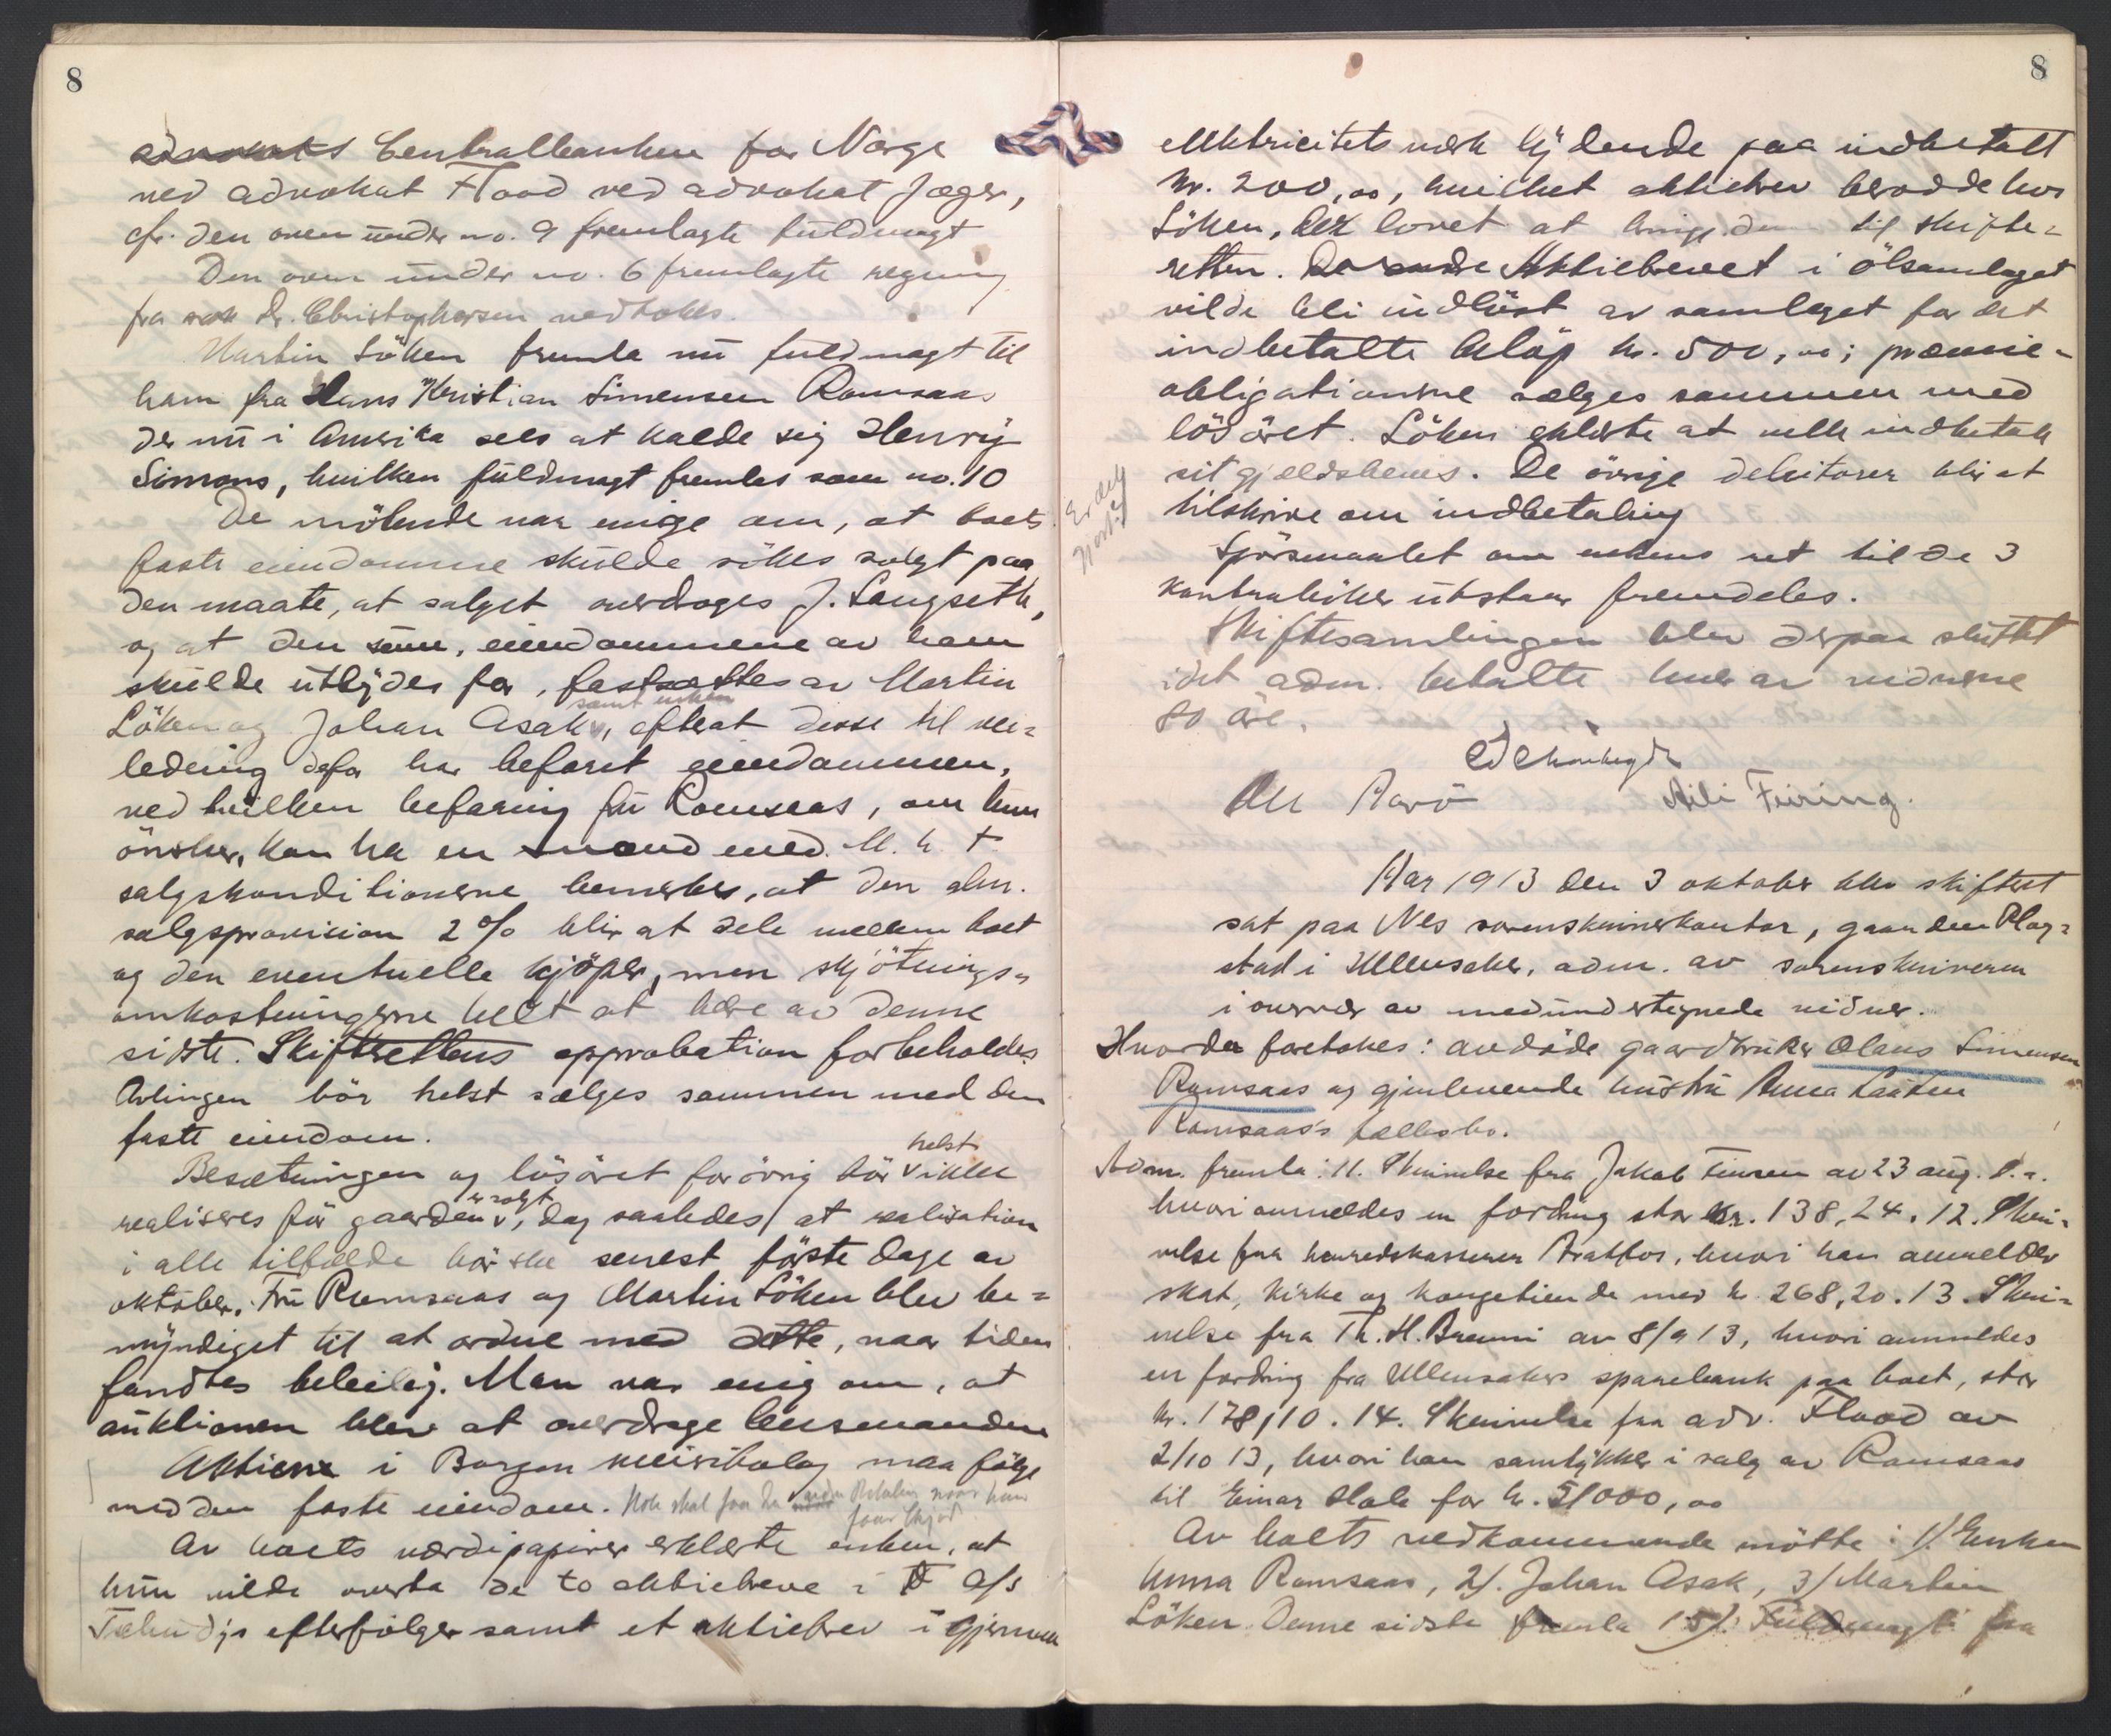 8
Centralbanken for Norge
ved advokat Flood ved advokat Jæger,
cfr. den oven under no. 9 fremlagte fuldmagt
Den oven under no. 6 fremlagte regning
fra dr. Christophersen vedtokes.
Martin Löken fremla nu fuldmagt til
ham fra Hans Kristian Simensen Ramsaas
der nu i Amerika sees at kalde sig Henry
Simons, hvilken fuldmagt fremlas som no. 10
De mötende var enige om, at boets
faste eiendomme skulde sökes solgt paa
den maate, at salget overdrages J. Langseth,
og at den sum, eiendommene av ham
skulde utbydes for, fastsættes av Martin
samt enken
Löken og Johan Asak, efterat disse til vei=
ledning defor har befaret eiendommen,
ved hvilken befaring fru Ramsaas, om hun
önsker, kan ha en mand med. M. h. t.
salgskonditionerne bemerkes, at den alm.
salgsprovision 2 % blir at dele mellem boet
og den eventuelle kjöper, men skjötnings=
omkostningerne helt at bære av denne
sidste. Skifterettens approbation forbeholdes.
Avlingen bör helst sælges sammen med den
faste eiendom.
helst
Besætningen og lösöret forövrig bör ikke
er solgt
realiseres för gaarden, dog saaledes at realisation
i alle tilfælde bör ske senest förste dage av
oktober. Fru Ramsaas og Martin Löken blev be=
myndiget til at ordne med dette, naar tiden
fandtes beleilig. Man var enig om, at
auktionen blev at overdrage lensmanden
Aktierne i Borgen meieribolag maa fölge
med den faste eiendom.
Av boets værdipapirer erklærte enken, at
hun vilde overta de to aktiebreve i A/S
efterfölger samt et aktiebrev i Gjermaa
8
elektricitetsverk lydende paa indbetalt
kr. 200,00, hvilket aktiebrev berodde hos
Löken, der lovet at bringe den til skifte=
retten. Aktiebrevet i ölsamlaget
vilde bli indlöst av samlaget for det
indbetalte belöp kr. 500,00; præmie=
obligationerne sælges sammen med
lösöret. Löken erklærte at ville indbetale
sit gjældsbevis. De övrige debitorer blir at
tilskrive om indbetaling
Spörsmaalet om enkens ret til de 3
kontraböker utstaar fremdeles.
Skiftesamlingen blev derpaa sluttet
idet adm. betalte hver av vidnerne
80 öre.
Ole Aarö Nils Feiring.
Aar 1913 den 3 oktober blev skifteret
sat paa Nes sorenskriverkontor, gaarden Plog=
stad i Ullensaker, adm. av sorenskriveren
i overvær av medundertegnede vidner.
Hvorda foretokes: avdöde gaardbruker Olaus Simensen
Ramsaas og gjenlevende hustru Anna Laake
Ramsaas's fællesbo.
Adm. fremla: 11. Skrivelse fra Jakob Finsen av 23 aug. d. a.
hvori anmeldes en fordring stor kr. 138,24. 12. Skri=
velse fra herredskasserer Bratfos, hvori han anmelder
skat, kirke og kongetiende med kr. 268,20. 13. Skri=
velse fra Th. H. Breuni av 8/9 13, hvori anmeldes
en fordring fra Ullensakers sparebank paa boet, stor
kr. 178,10. 14. Skrivelse fra adv. Flood av
2/10 13, hvori han samtykker i salg av Ramsaas
til Einar Hale for kr. 51000,00
Av boets vedkommende mötte: 1/ Enken
Anna Ramsaas, 2/. Johan Asak, 3/ Martin
Löken. Denne sidste fremla 15/: Fuldmagt fra